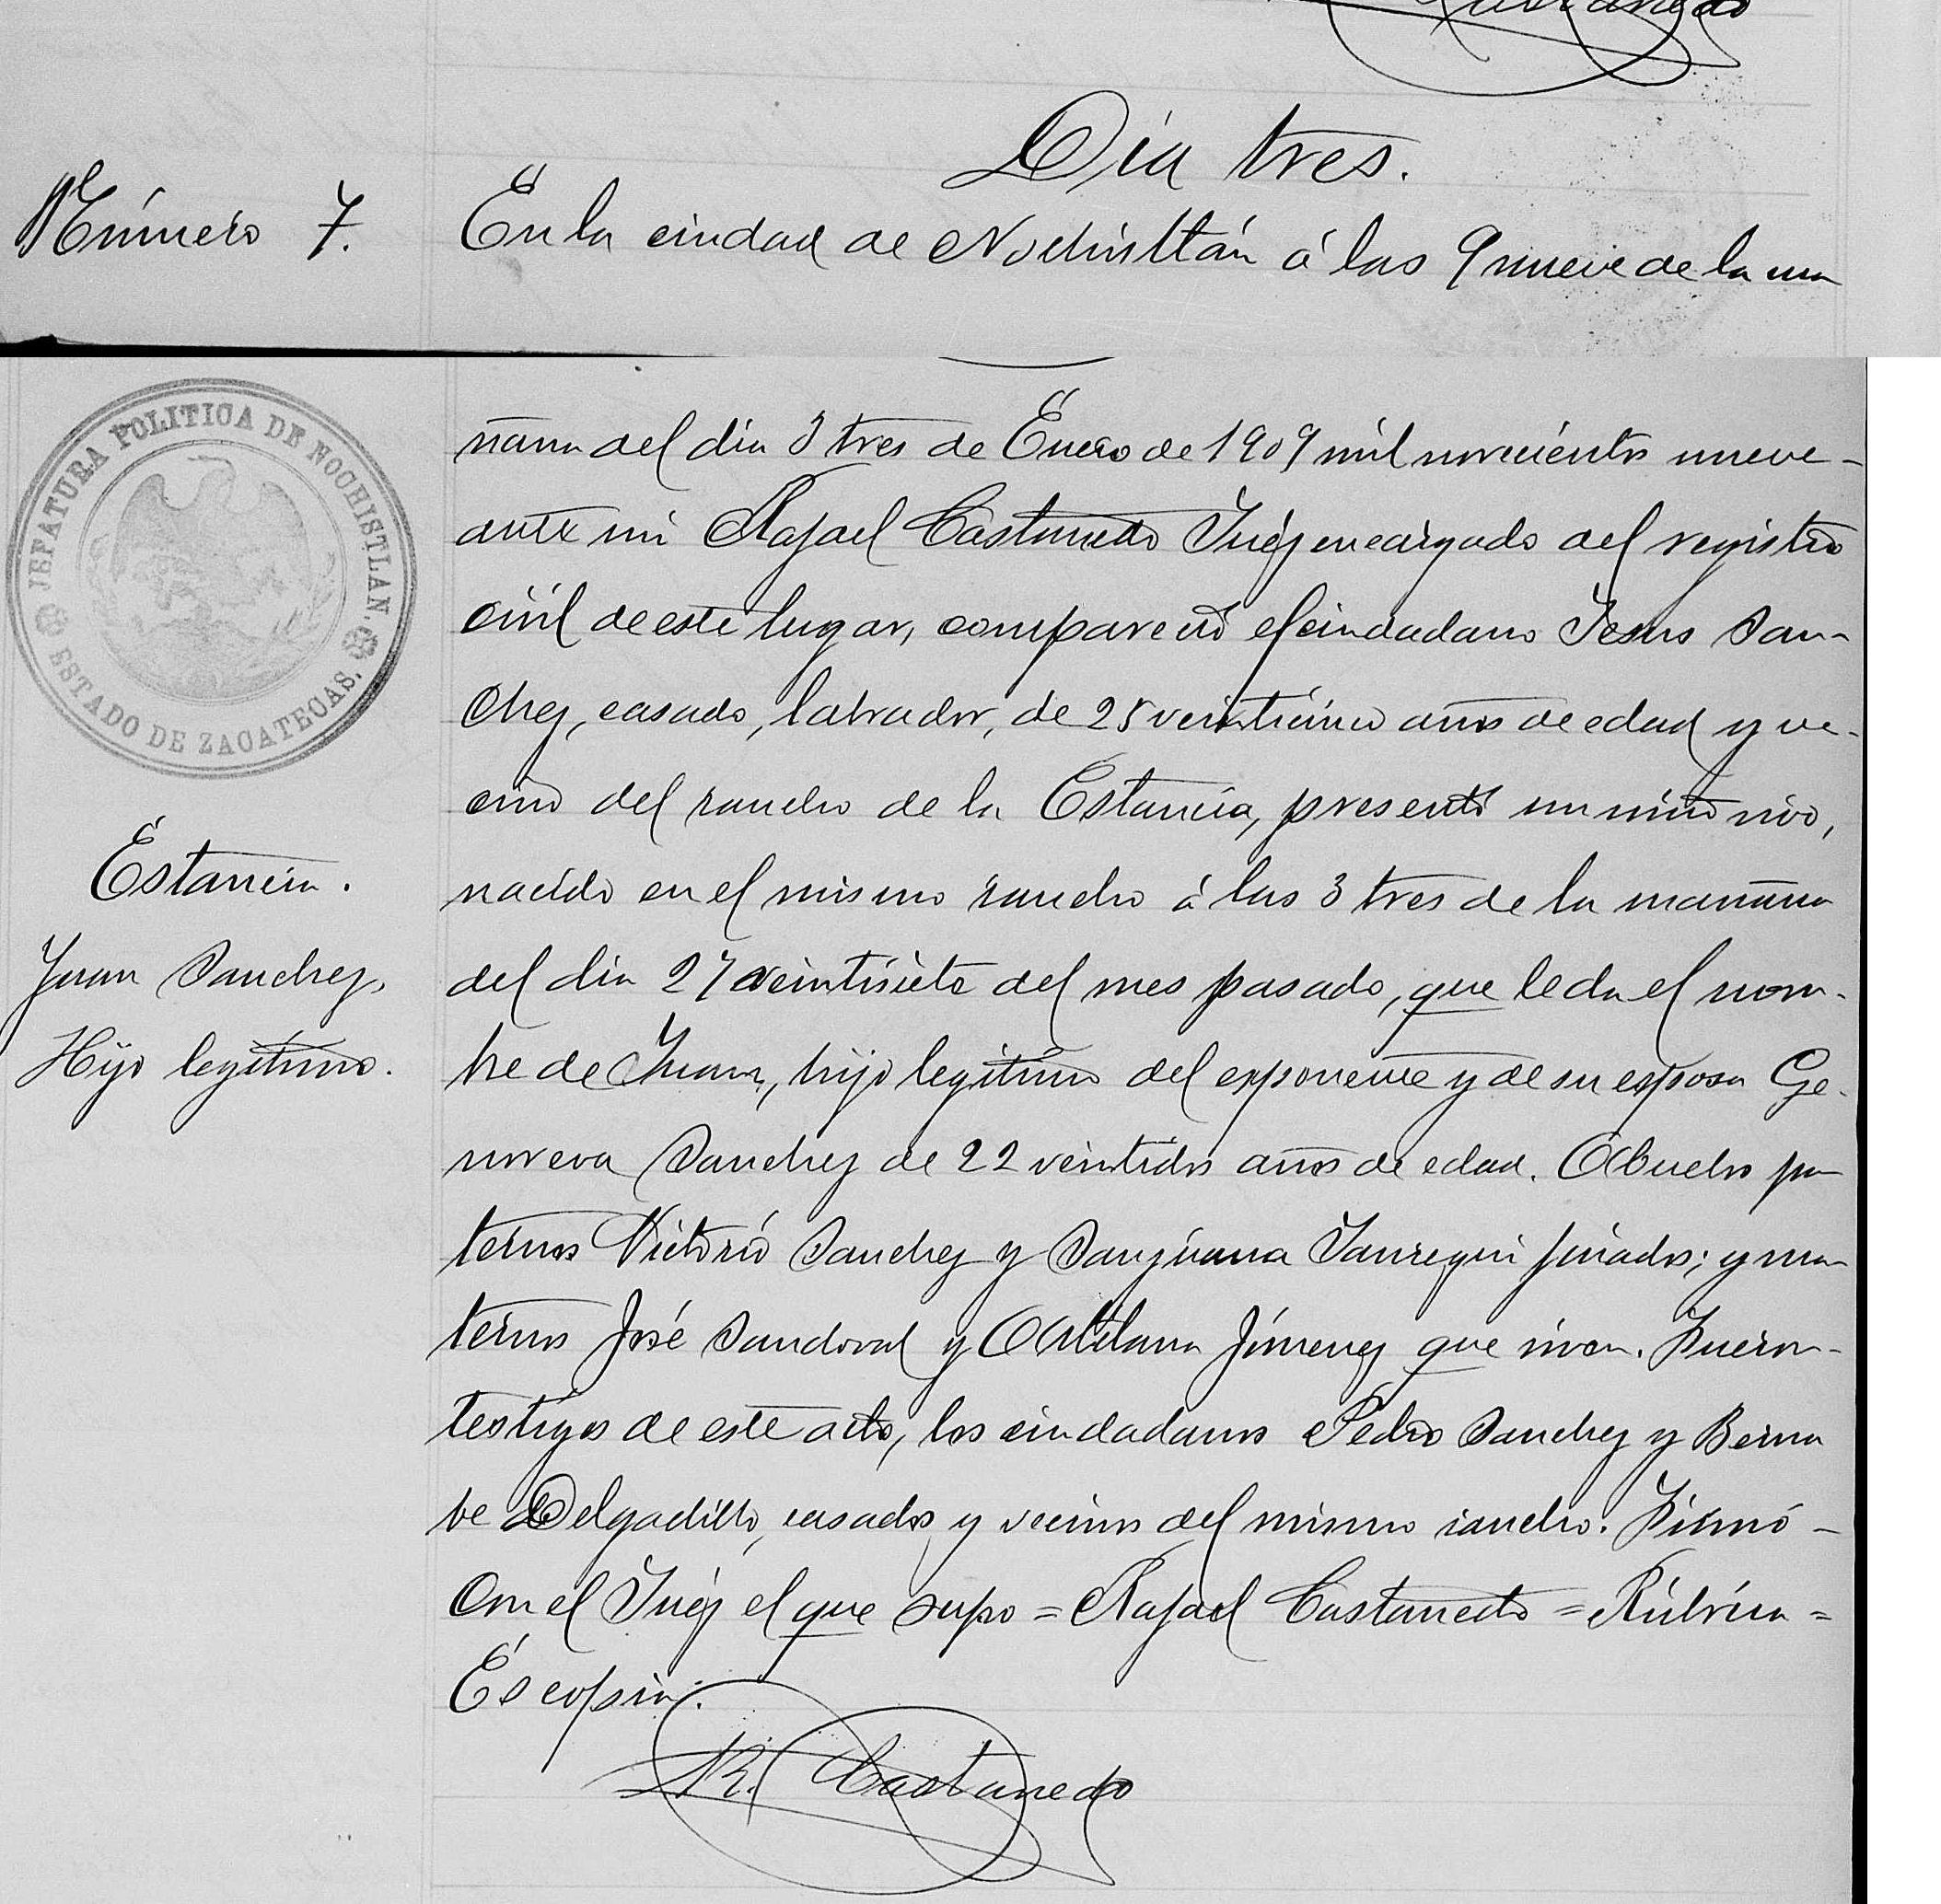 Día tres.
Número 7.
En la ciudad de Nochistlán á las 9 nueve de la ma
ñana del día 3 tres de Enero de 1909 mil novecientos nueve-
ante mi Rafael Castanedo Juéz encargado del registro
civil de este lugar, compareció el ciudadano Jesus San-
chez, casado, labrador, de 25 veinticinco años de edad y ve-
cino del rancho de la Estancia, presentó un niño vivo,
nacido en el mismo rancho á las 3 tres de la mañana
del día 27 veintisiete del mes pasado, que le da el nom-
bre de Juan, hijo legítimo del exponente y de su esposa Ge-
noveva Sanchez de 22 veintidos años de edad. Abuelos pa
ternos Victorio Sanchez y Sanjuana Jauregui finados; y ma
ternos José Sandoval y Atilana Jímenez que viven. Fueron-
testigos de este acto, los ciudadanos Pedro Sanchez y Berna
be Delgadillo, casados y vecinos del mismo rancho. Firmó-
con el Juéz el que supo = Rafael Castanedo = Rúbrica =
Es copia.
R. Castanedo
JEFATURA POLITICA DE NOCHISTLAN.
ESTADO DE ZACATECAS.
Estancia.
Juan Sanchez,
Hijo legítimo.